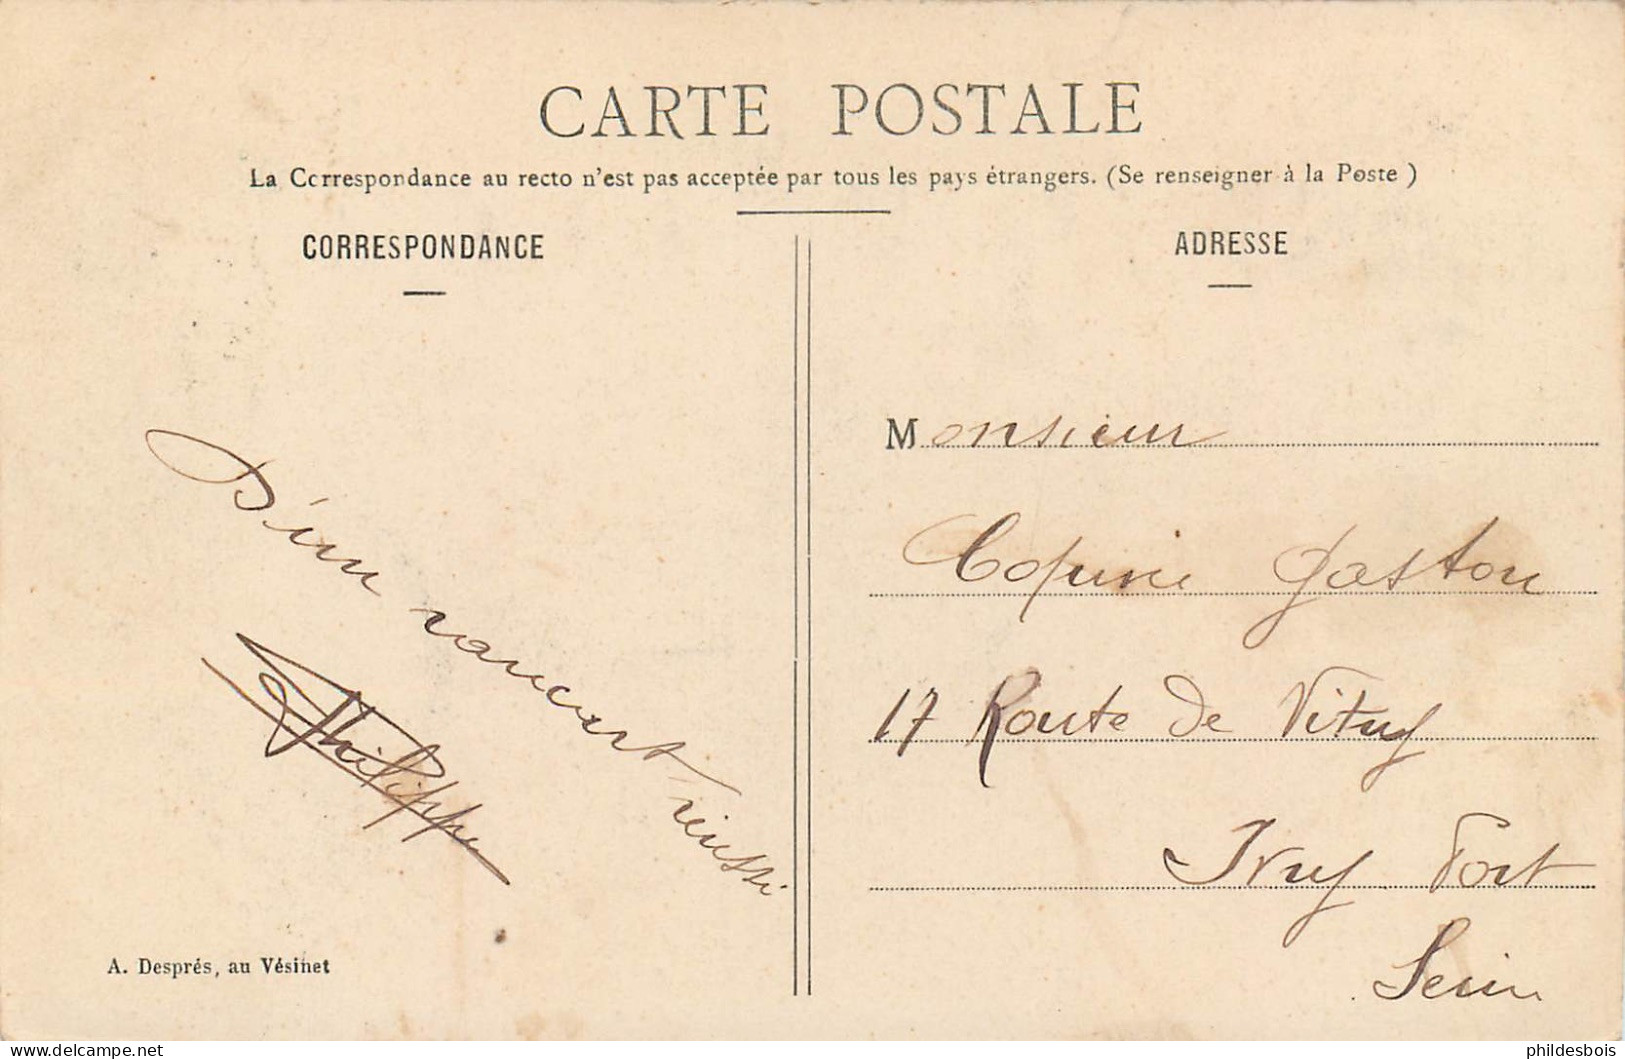 CARTE POSTALE
La Correspondance au recto n'est pas acceptée par tous les pays étrangers. (Se renseigner à la Poste)
CORRESPONDANCE
D'un
Philippe
A. Després, au Vésinet
ADRESSE
Monsieur
Gaston
17 Route de Vitry
Ivry Port
Seine
phildesbois